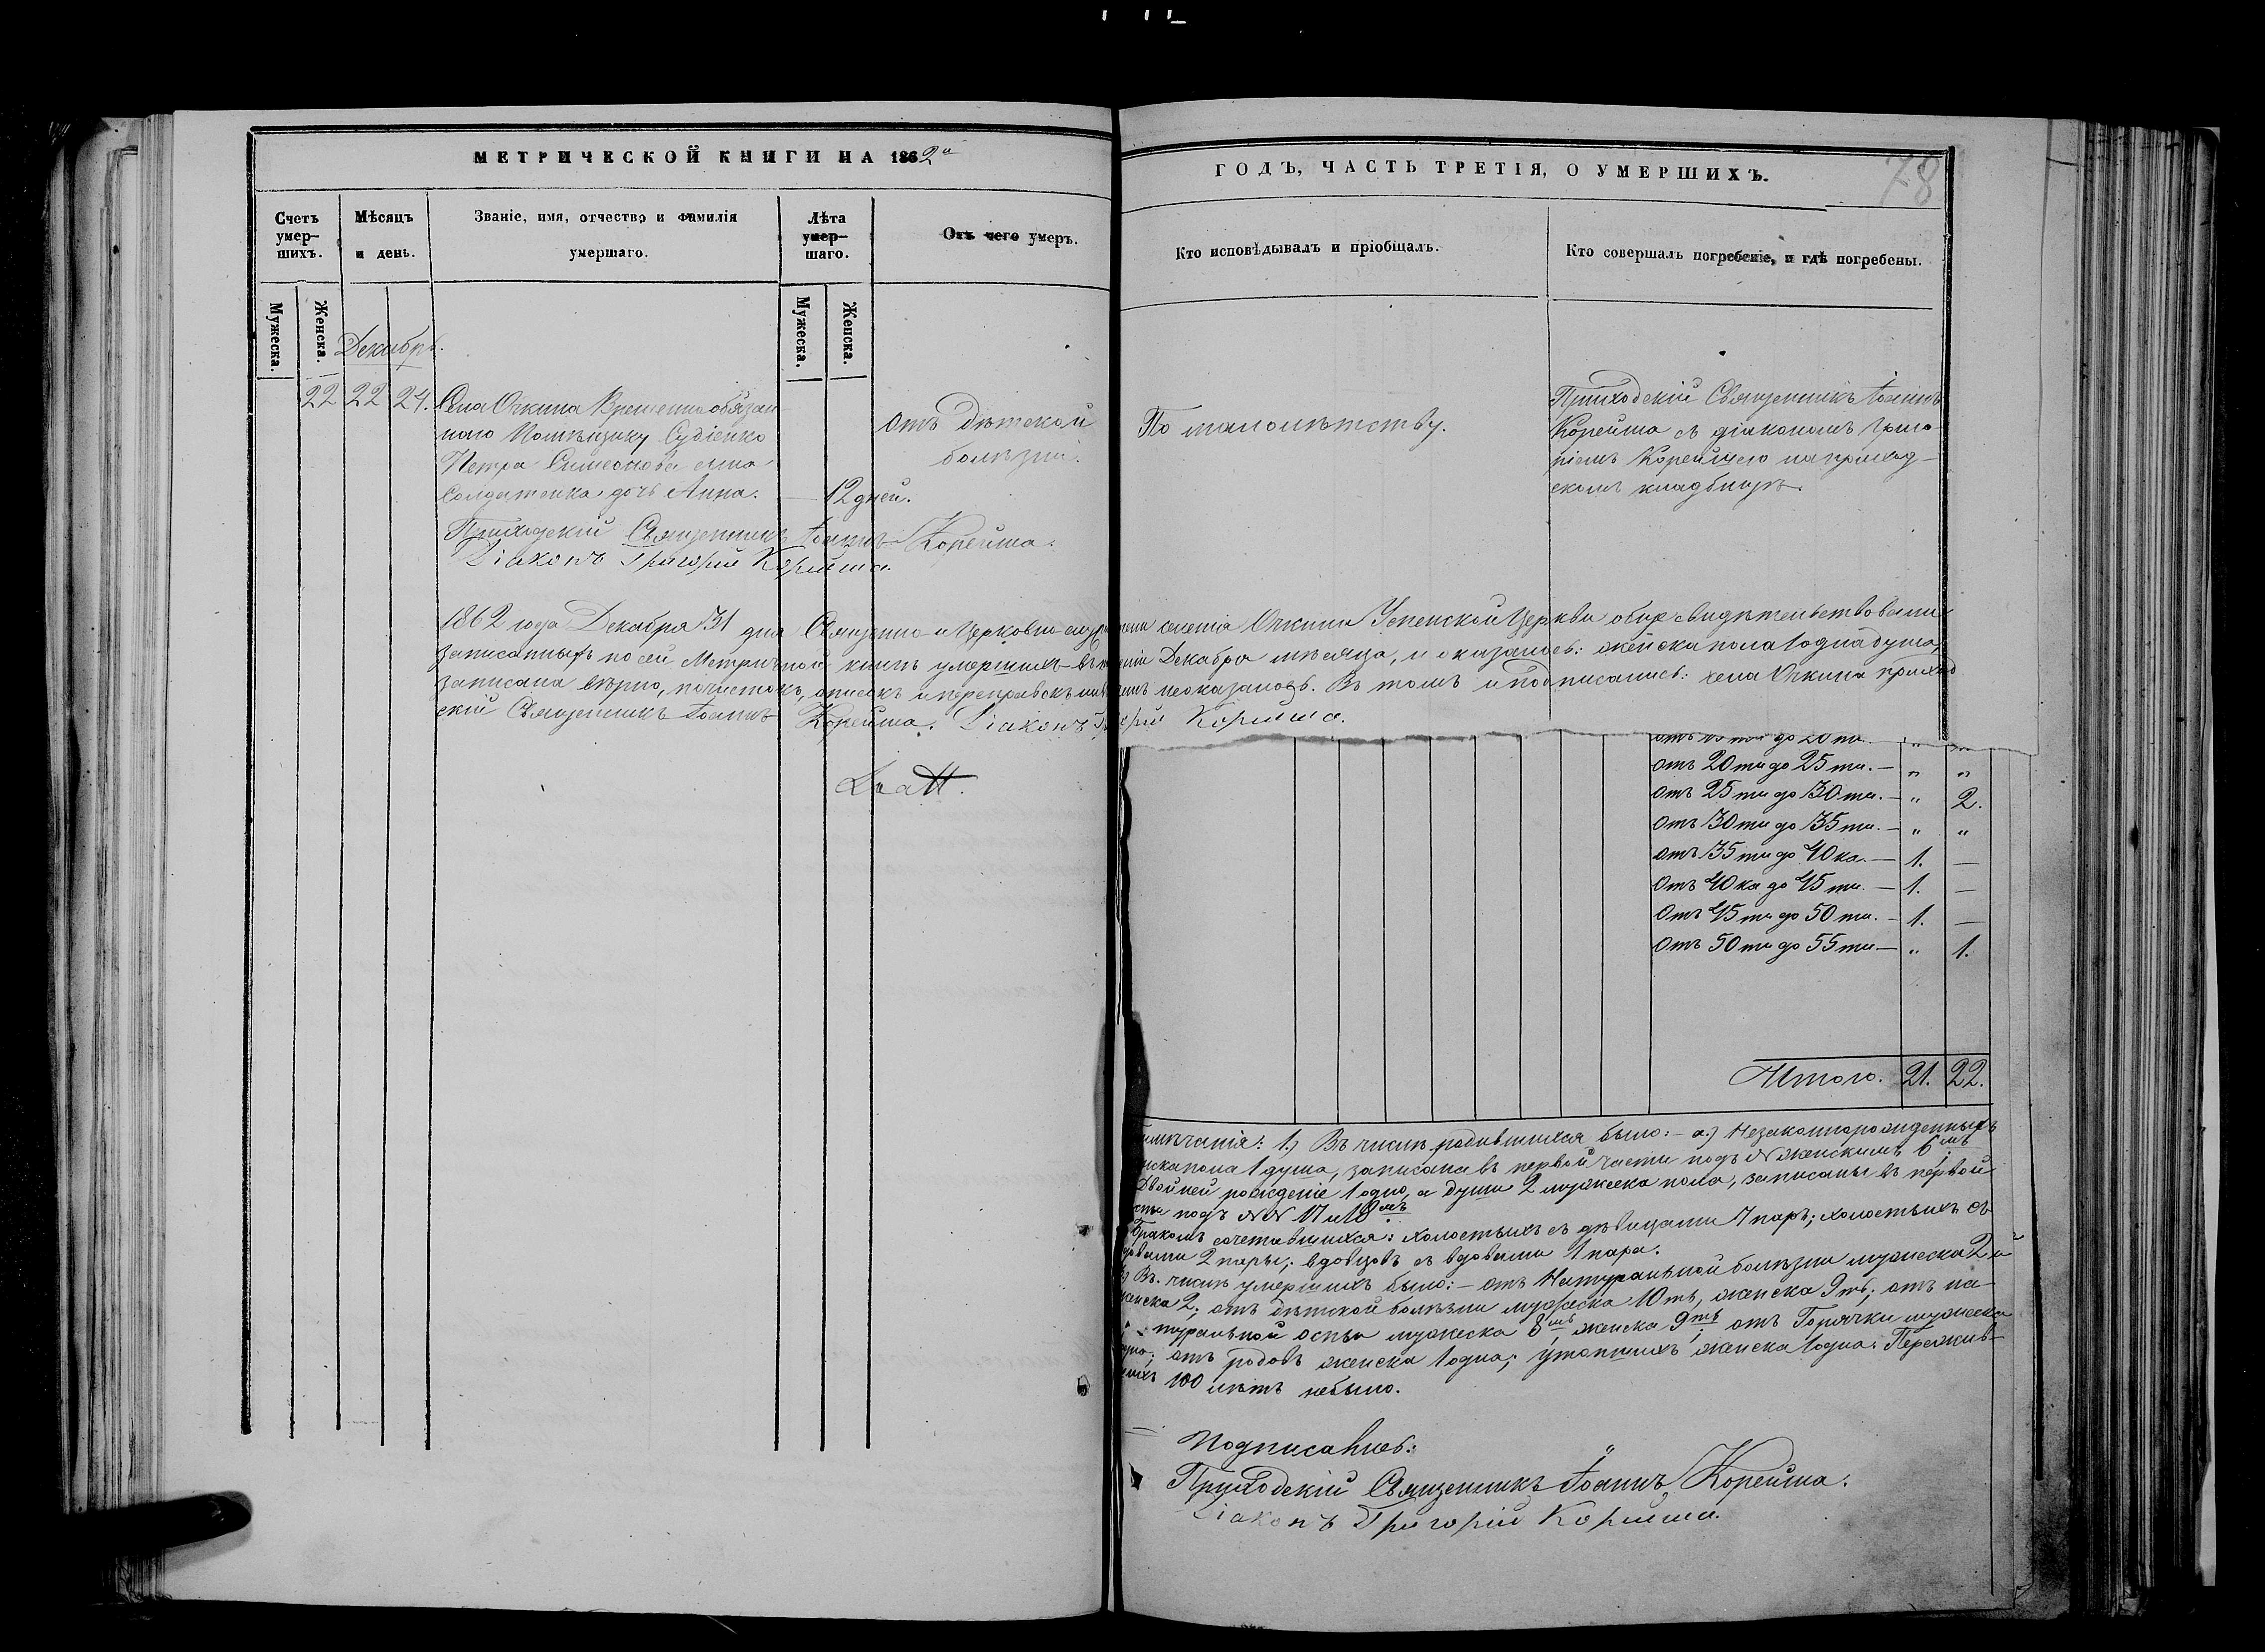 МЕТРИЧЕСКОЙ КНИГИ НА 1862й
Счетъ умер-шихъ.
Мѣсяцъ и день.
Званіе, имя, отчество и фамилія умершаго.
Лѣта умер-шаго.
Отъ чего умеръ.
Мужеска.
Женска.
Мужеска.
Женска.
Декабрь.
22 22 24.
Села Очкина Временно обязан-
ного Помѣщику Судіенко
Петра Симеонова сына
Солдатенка дочь Анна.
12 дней.
отъ дѣтской
болѣзни.
Приходскій Священникъ Іоаннъ Корейша.
Діаконъ Григорій Корейша.
ГОДЪ, ЧАСТЬ ТРЕТІЯ, О УМЕРШИХЪ.
78
Кто исповѣдывалъ и пріобщалъ.
Кто совершалъ погребеніе, и гдѣ погребены.
По малолѣтству.
Приходскій Священникъ Іоаннъ
Корейша съ діакономъ Григо-
ріемъ Корейшею на приход-
скомъ кладбищѣ.
1862 года Декабря 31 дня Священно и Церковно служители селенія Очкина Успенской Церкви обще свидѣтельствовали
записанныхъ по сей Метричной книгѣ умершихъ въ теченіи Декабря мѣсяца, и оказалось: женска пола 1 одна душа,
записана вѣрно, почистокъ, описокъ и переправокъ никакихъ неоказалось. Въ томъ и подписались: села Очкина приход
скій Священникъ Іоаннъ Корейша. Діаконъ Григорій Корейша.
до 20 ти. — „
отъ 20 ти до 25 ти. — „ „
отъ 25 ти до 30 ти. — „ 2.
отъ 30 ти до 35 ти. — „ „
отъ 35 ти до 40 ка. — 1. —
отъ 40 ка до 45 ти. — 1. —
отъ 45 ти до 50 ти. — 1. —
отъ 50 ти до 55 ти — „ 1.
Итого. 21. 22.
имѣчанія: 1, Въ числѣ родившихся было: — а.) Незаконнорожденныхъ
нска пола 1 душа, записана въ первой части подъ № женскимъ 6мъ;
Двойней рожденіе 1 одно, а души 2 мужеска пола, записаны въ первой
сти подъ №№ 17 и 18мъ.
Бракомъ сочетавшихся: холостыхъ съ дѣвицами 7 паръ; холостыхъ съ
довами 2 пары; вдовцовъ съ вдовами 1 пара.
Въ числѣ умершихъ было: — отъ Натуральной болѣзни мужеска 2 и
женска 2; отъ дѣтской болѣзни мужеска 10 ть, женска 9 ть; отъ на-
туральной оспы мужеска 8мь, женска 9ть; отъ Горячки мужеска
отъ родовъ женска 1 одна; утопшихъ женска 1 одна. Пережив-
шихъ 100 лѣтъ небыло.
Подписались:
Приходскій Священникъ Іоаннъ Корейша.
Діаконъ Григорій Корейша.